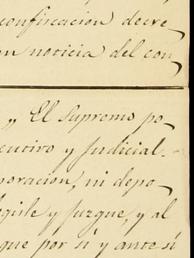 confiscacion decre
on noticia del con
„ El Supremo po
ecutivo y Judicial.
poracion, ni depo
y juzgue, y al
que por sí y ante sí